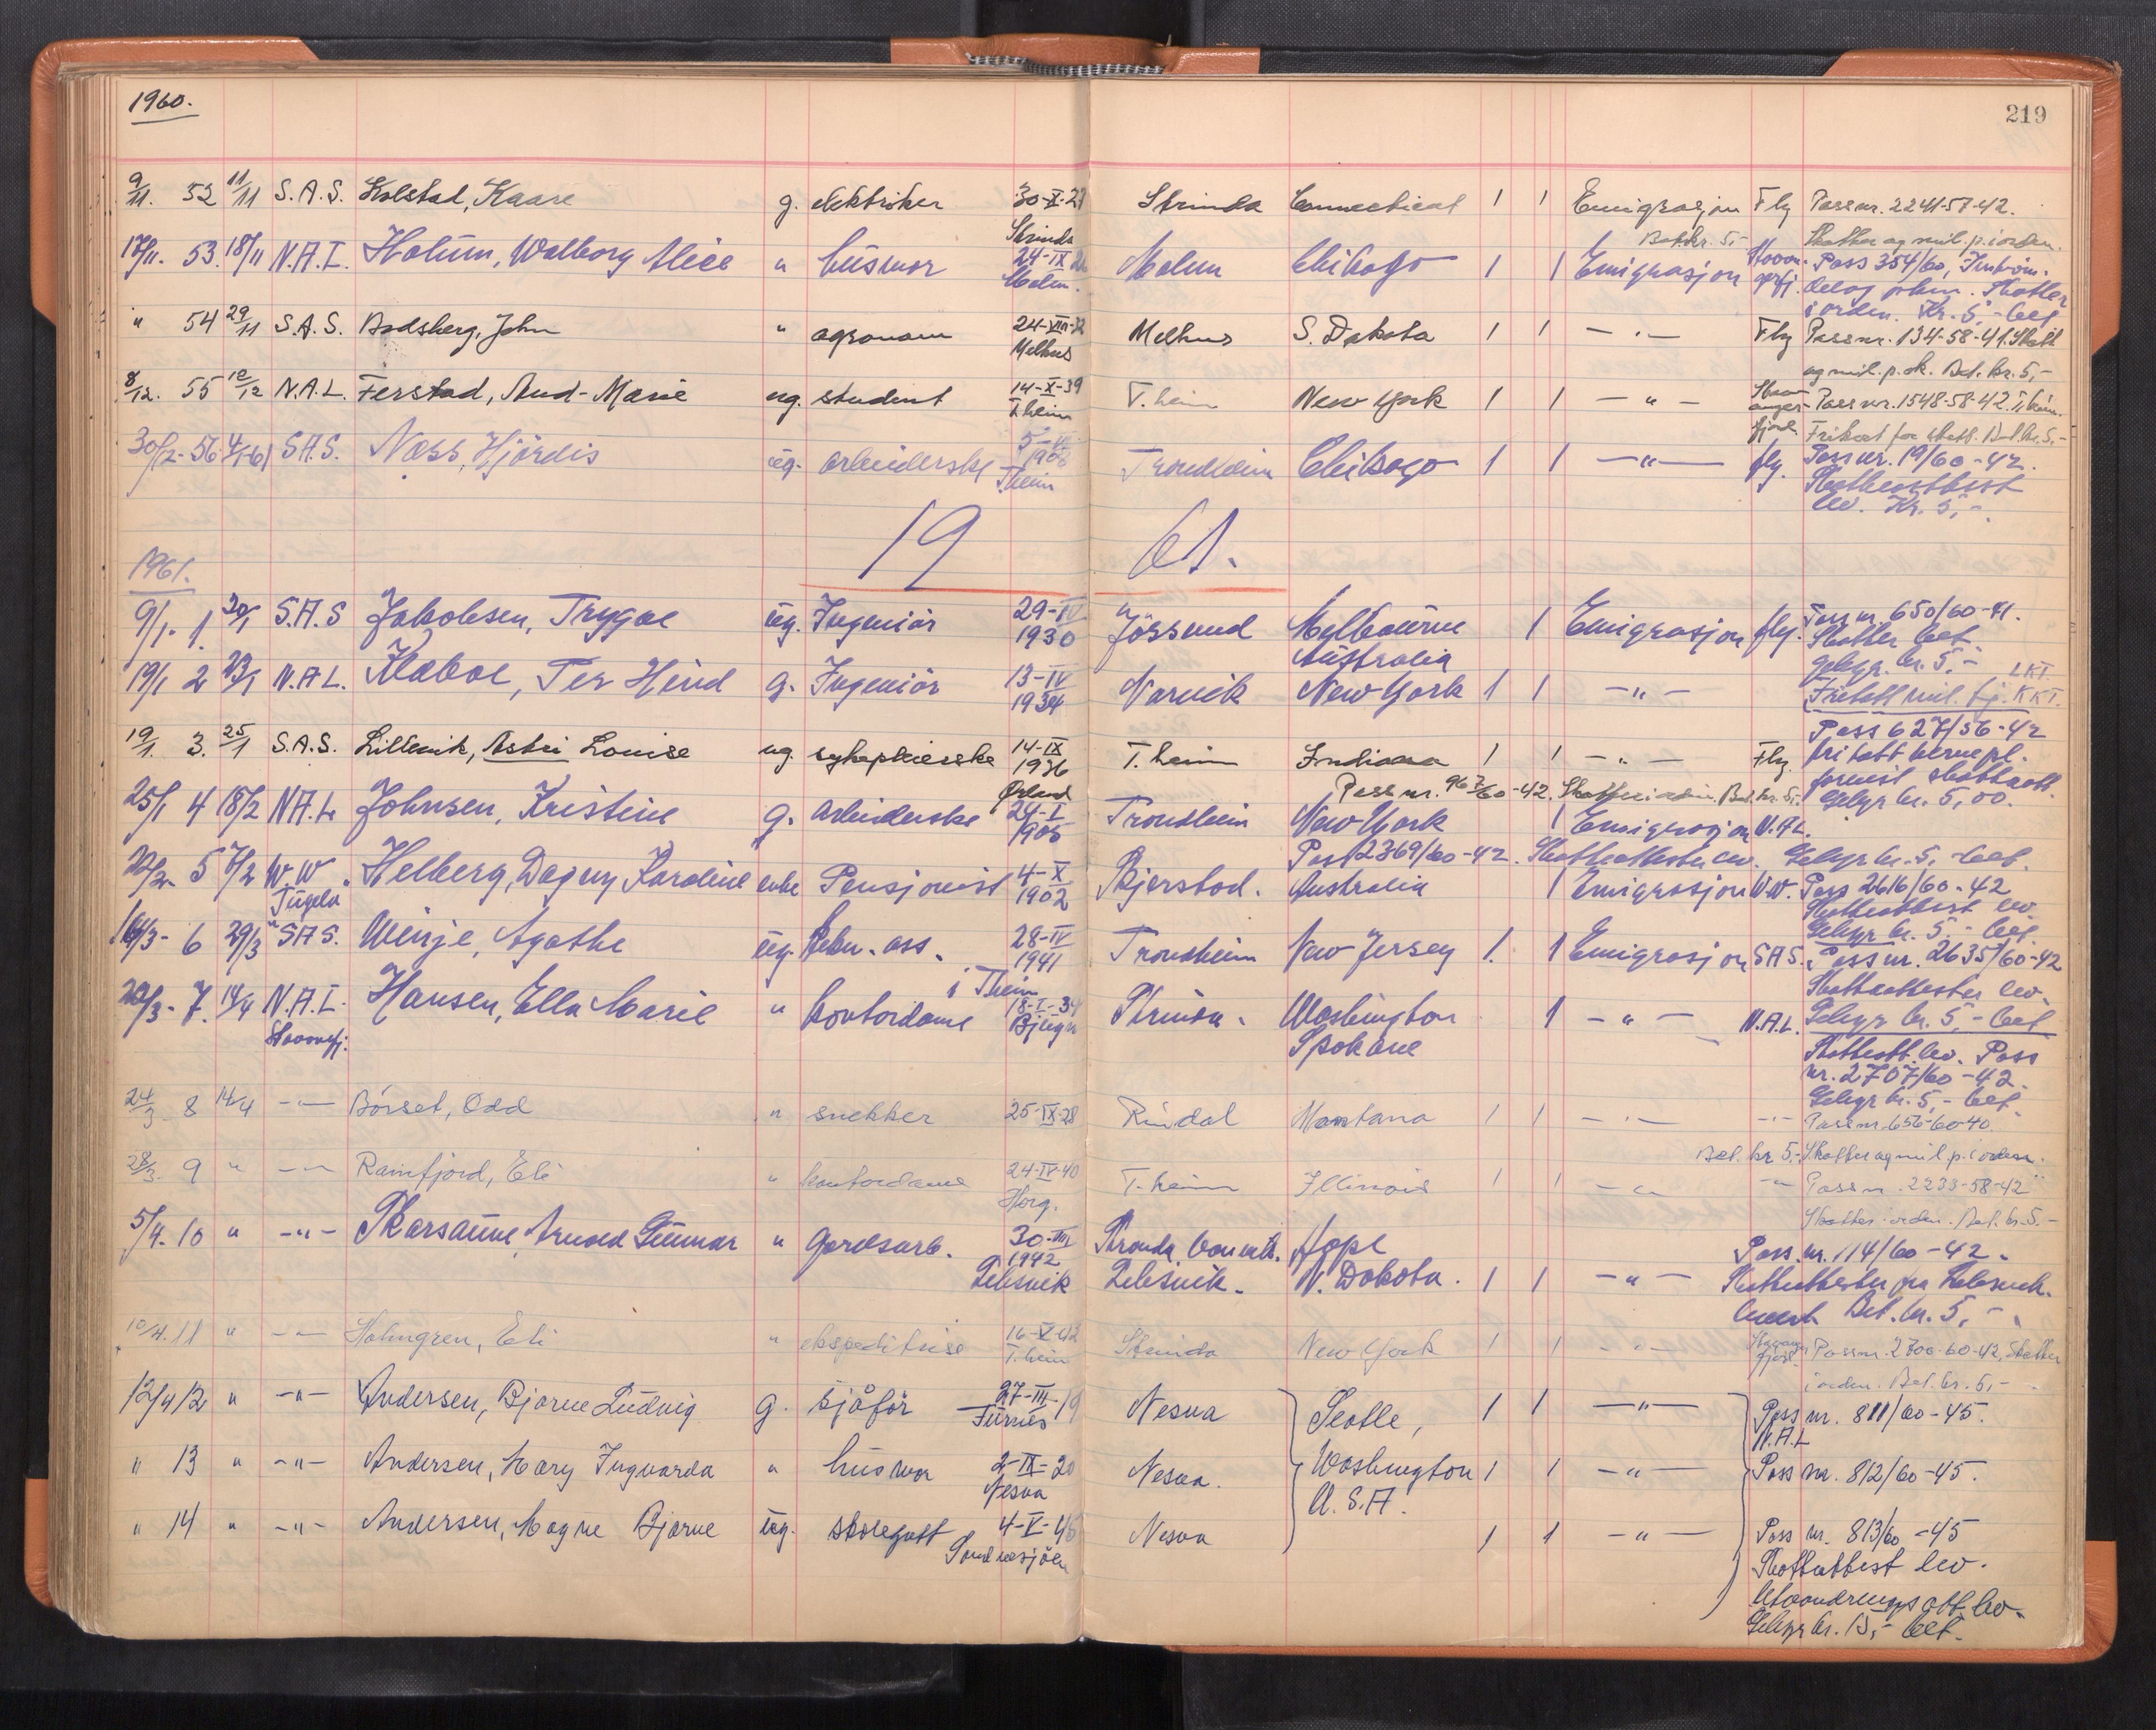 1960.
219
9/11. 52 11/11 S.A.S. Kolstad, Kaare g. elektriker 30-X-27 Strinda Strinda Connecticut 1 1 Emigrasjon Fly Pass nr. 2241-57-42.
Bet. kr. 5,- Skatter og mil. p. i orden.
17/11. 53. 18/11 N.A.L. Holum, Walborg Alice " husmor 24-IX Malm. Malm Chikago 1 1 Emigrasjon Pass 354/60,
Skatter i orden. Kr. 5,- bet
" 54 29/11 S.A.S. Bodsberg, John " agronom 24-VIII-32 Melhus Melhus S. Dakota 1 1 — " — Fly Pass nr. 134-58-41. Skatt
og mil. p. ok. Bet. kr. 5,-
8/12. 55 10/12 N.A.L. Ferstad, Aud-Marie ug. student 14-X-39 T.heim T.heim New York 1 1 — " — Stavangerfjord Pass nr. 1548-58-42. T.heim.
Frikort for skatt. Bet. kr. 5,-
30/12- 56 4/1-61 S.A.S. Næss, Hjördis ug. arbeiderske T.heim Trondheim Chikago 1 1 — " — fly. Pass nr. 19/60-42.
Skatteattest
lev. Kr. 5,-.
19 61.
1961.
9/1. 1. 20/1 S.A.S Jakobsen, Trygve ug. Ingeniör 29-IV 1930 Jössund Melbourne Australia 1 Emigrasjon fly. Pass nr. 650/60-41.
Skatter bet
Gebyr. kr. 5,-
19/1 2 23/1 N.A.L. Klaboe, Per Hind g. Ingeniör 13-IV 1934 Narvik New York 1 1 — " — Fritatt mil. tj.
Pass 627/56-42
fritatt vernepl.
Gebyr kr. 5,00.
19/1. 3. 25/1 S.A.S. Lillevik, Astri Louise ug. sykepleierske 14-IX 1936 Ørland T.heim Indiana 1 1 — " — Fly
Pass nr. 967/60-42. Skatter i orden. Bet. kr. 5,-
25/1 4 18/2 N.A.L. Johnsen, Kristine g. Arbeiderske 24-I 1905 Trondheim New York 1 Emigrasjon N.A.L.
Pass 2369/60-42. Skatteattester lev. Gebyr kr. 5,- bet.
5 7/2 W.W. Tugela Helberg, Dagny Karoline enke Pensjonist 4-X 1902 Bjerstad. Australia 1 Emigrasjon W.W. Pass 2616/60-42
Skatteattest lev
Gebyr kr. 5.- bet.
16/3- 6 29/3 S.A.S. Winje, Agathe ug. 28-IV 1941 i T.heim Trondheim New Jersey 1. 1 Emigrasjon S.A.S. Pass nr. 2635/60-42
Skatteattester lev.
Gebyr kr. 5,- bet
7. 14/4 N.A.L. Stavangfj. Hansen, Ella Marie " kontordame 18-I-34 Bjugn Strinda. Washington Spokane 1 — " — N.A.L.
Skatteatt. lev. Pass
nr. 2707/60-42.
Gebyr kr. 5,- bet.
24/3 8 14/4 — " — Börset, Odd " snekker 25-IX-28 Rindal Montana 1 1 — " — — " — Pass nr. 656-60-40.
Bet. kr 5,- Skatter og mil. p. i orden.
28/3. 9 " — " — Ramfjord, Eli " kontordame 24-IV-40 Horg. T.heim Illinois 1 1 — " — — " — Pass nr. 2233-58-42
Skatter i orden. Bet. kr. 5.-
5/4. 10 " — " — Skarsaune, Arnold Gunnar " Gardsarb. 30-VIII 1942 Leksvik Leksvik. Hope N. Dakota. 1 1 — " — Pass. nr. 114/60-42.
Skatteattester fra Leksvik.
levert Bet. kr. 5,-.
10/4. 11 " — " — Holmgren, Eli " ekspeditrise 16-V-42 T.heim Strinda New York 1 1 — " — Stavangerfjord Pass nr. 2706-60-42, Skatter
i orden. Bet. kr. 5,-
12/4 12 " — " — Andersen, Bjarne Ludvig g. sjåför 27-III-19 Furnes Nesna Seatle, 1 1 — " — Pass nr. 811/60-45.
N.A.L
" 13 " — " — Andersen, Mary Ingvarda " husmor 2-IX-20 Nesna Nesna. Washington 1 1 — " — Pass nr. 812/60-45.
U.S.A.
" 14 " — " — Andersen, Magne Bjarne ug. skolegutt 4-V-45 Sandnessjöen Nesna 1 1 — " — Pass nr. 813/60-45
Skatteattest lev.
Utvandringsatt lev.
Gebyr kr. 15,- bet.